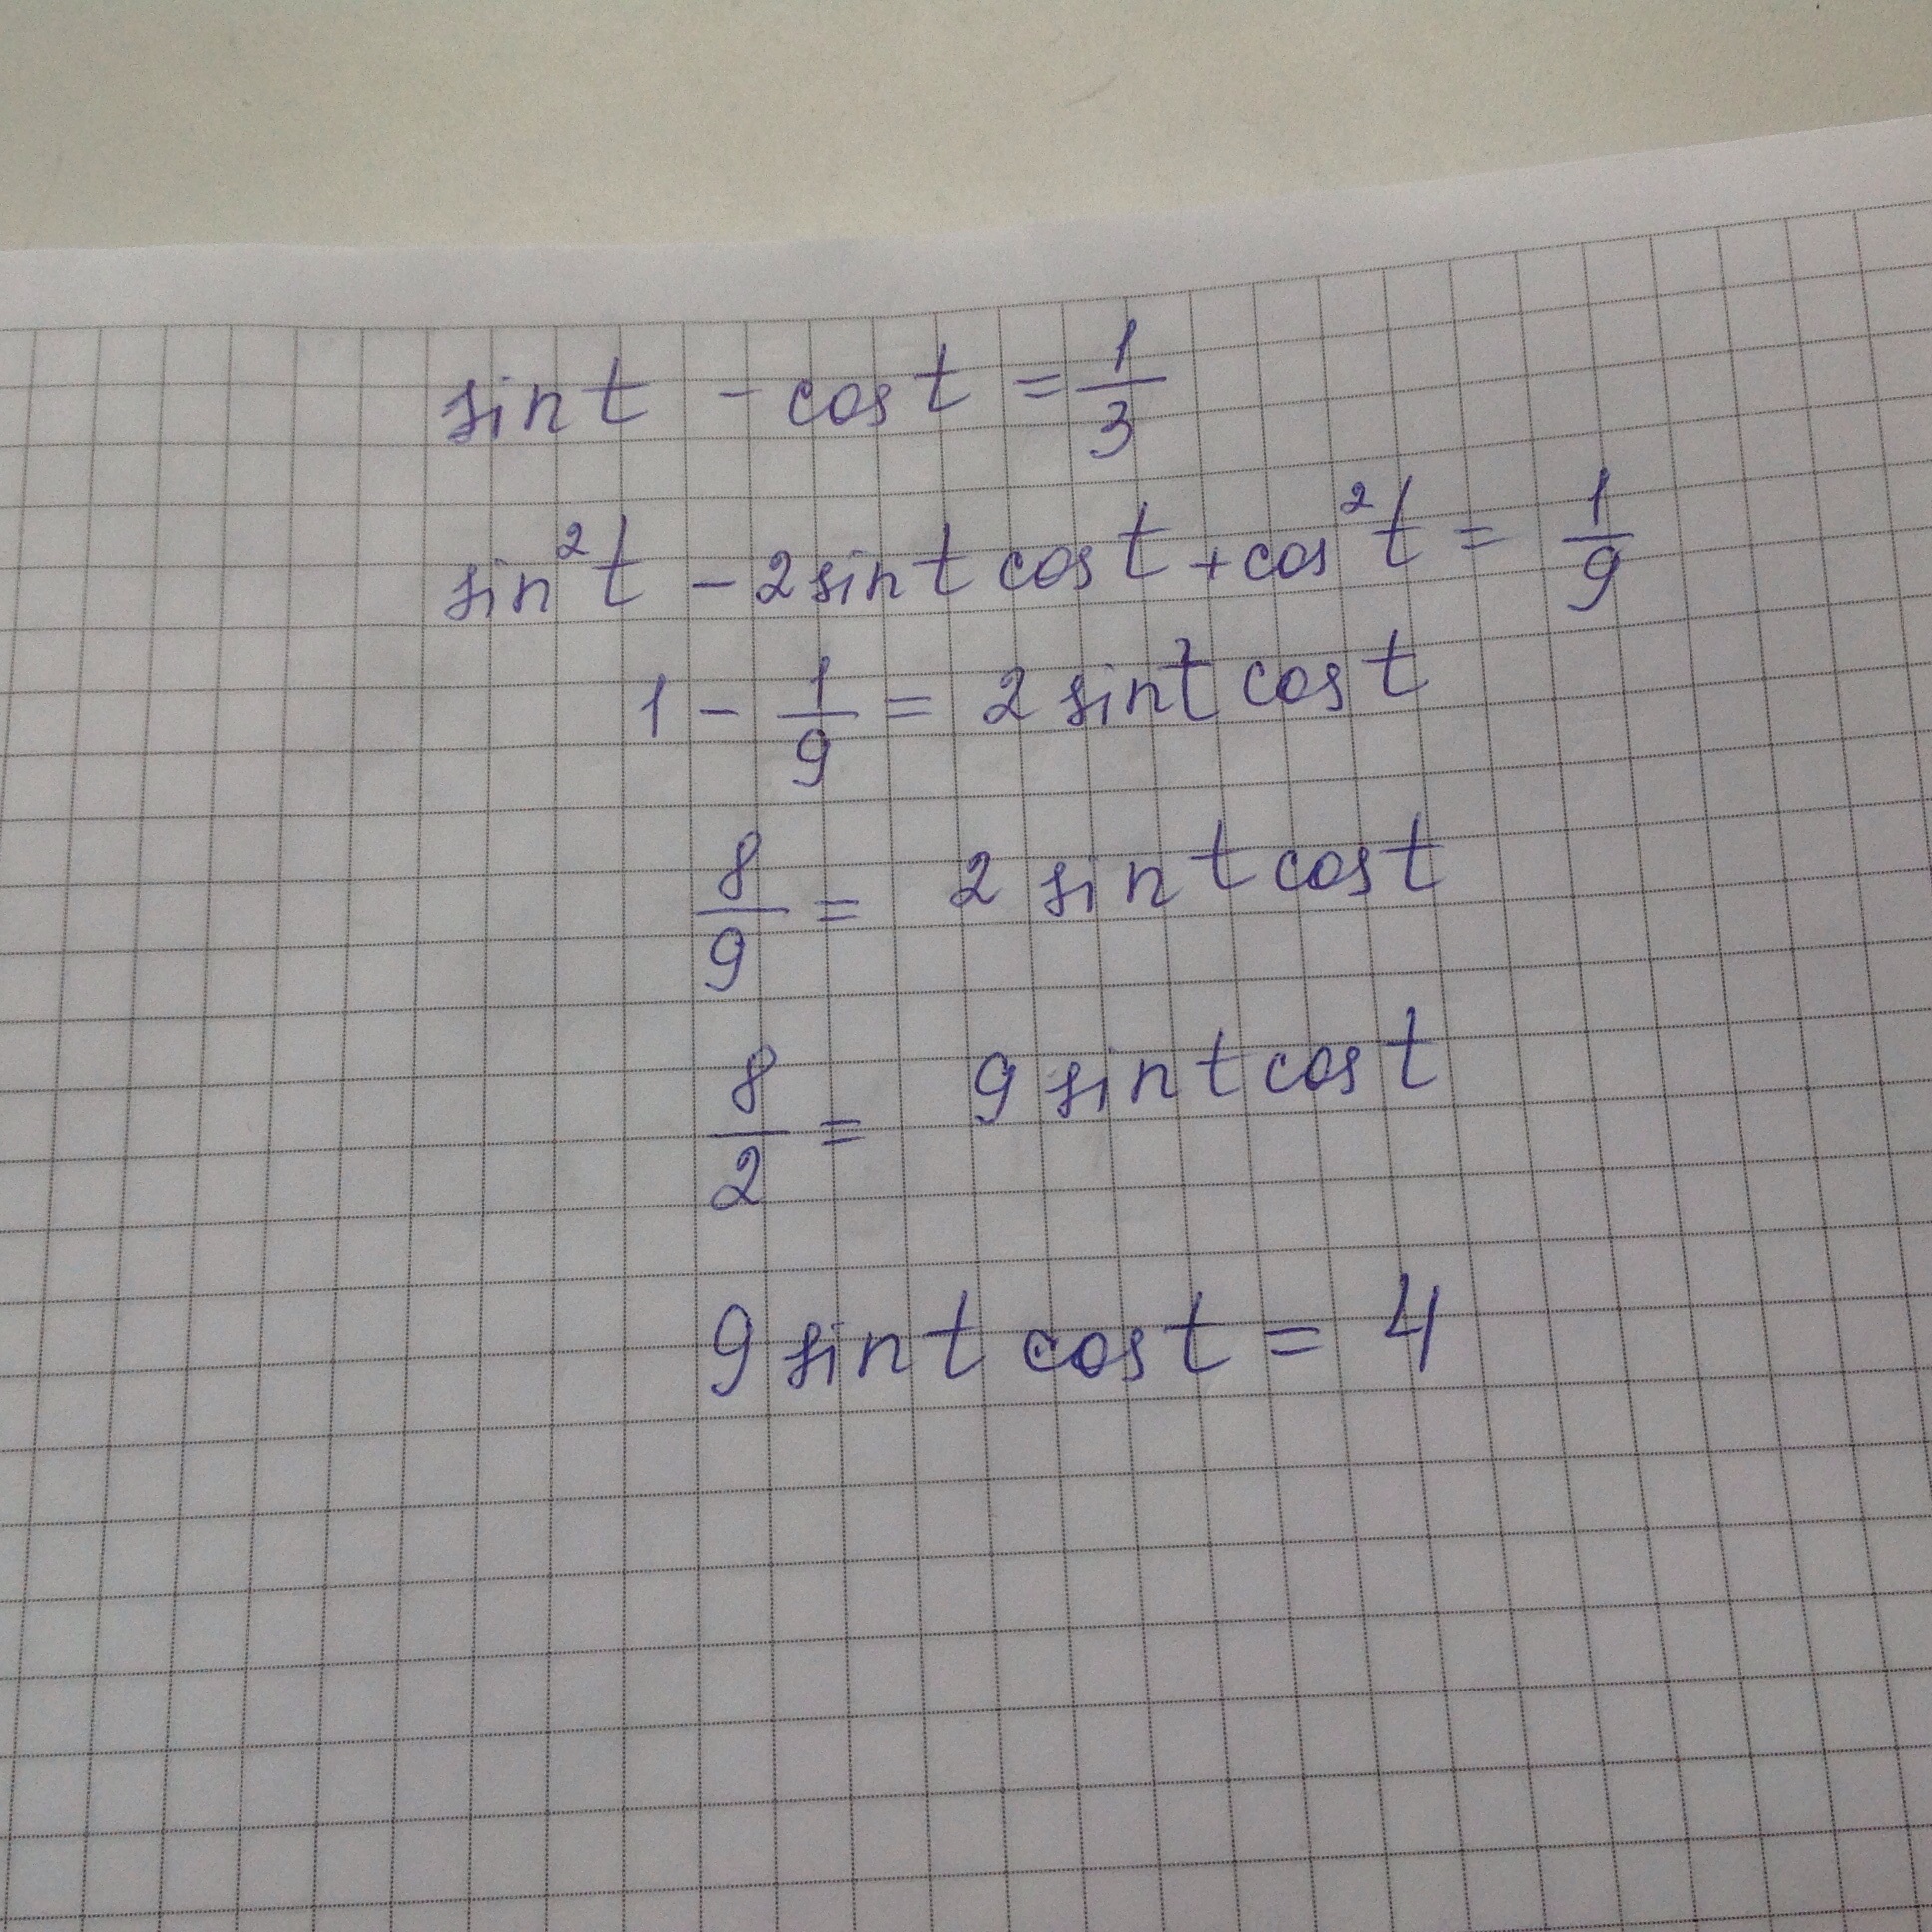 sin t - cos t = 1/3
sin²t - 2 sin t cos t + cos²t = 1/9
1 - 1/9 = 2 sin t cos t
8/9 = 2 sin t cos t
8/2 = 9 sin t cos t
9 sin t cos t = 4